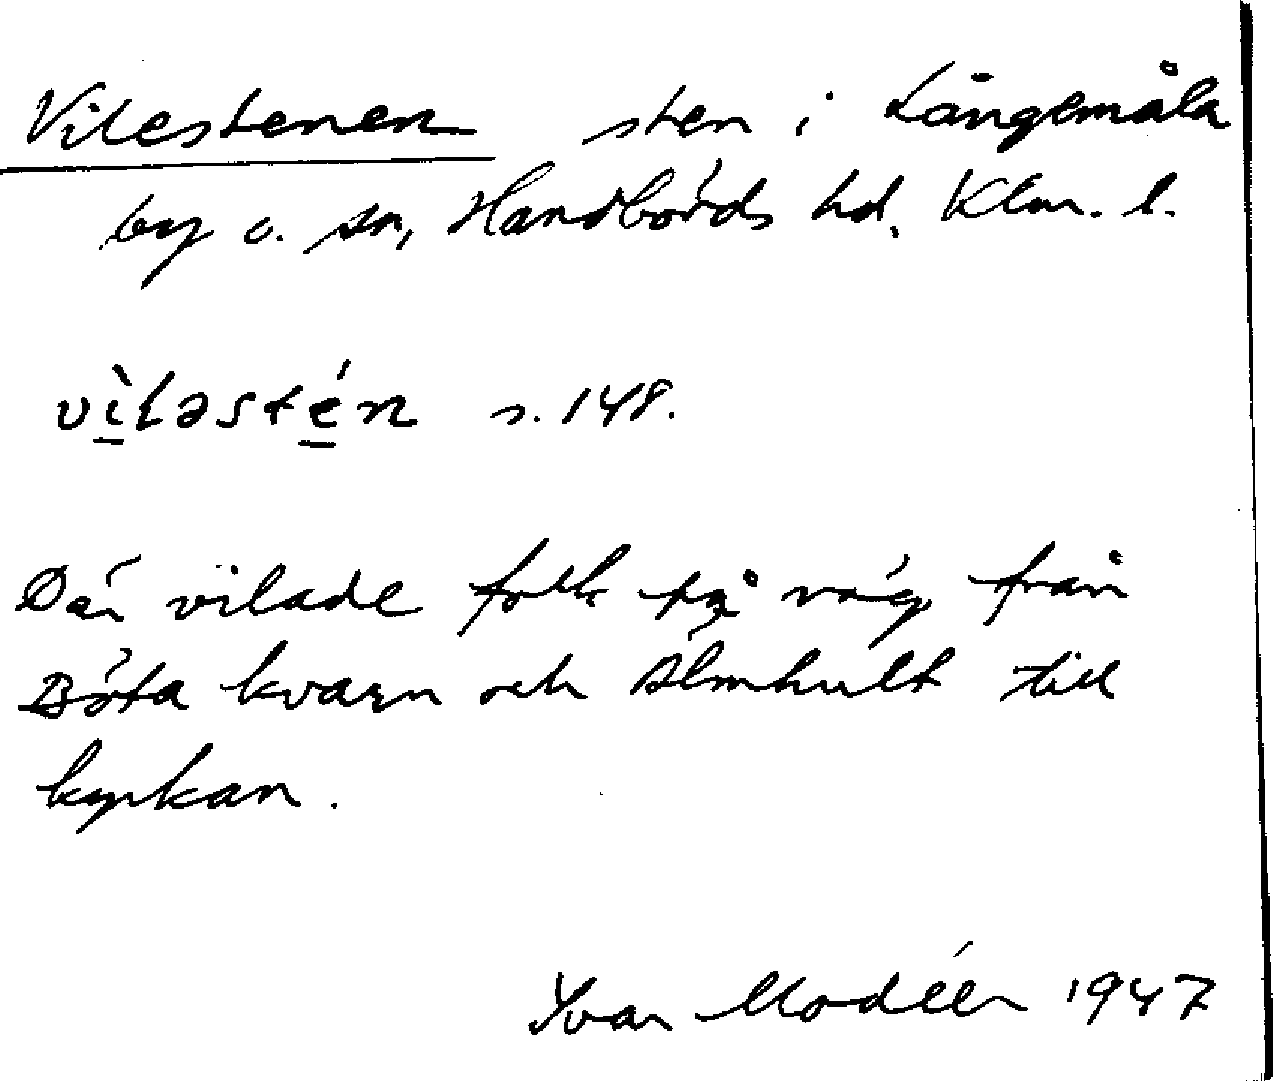 Vilestenen sten i Långemåla
by o. sn, Handbörds hd. Klm. l.
vìləstén s. 148.
Där vilade folk på väg från
Böta kvarn och Älmhult till
kyrkan.
Yvar Modéer 1947